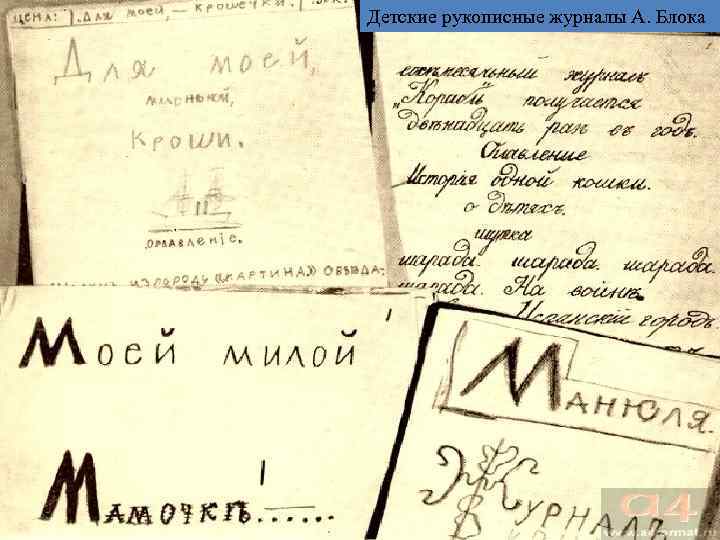 Детские рукописные журналы А. Блока
ЦЕНА: Для моей, — крошечки.
Для моей,
маленькой,
кроши.
ОГЛАВЛЕНIЕ.
ИЗ ГОРОДУ (КАРТИНА) ОБѢДА:
ежемѣсячный журналъ
„Корабль получается
двѣнадцать разъ въ годъ.
Оглавление
Исторія одной кошки.
о дѣтяхъ.
шутка
шарада. шарада. шарада.
шарада. На войнѣ.
Испанскій городъ
Моей милой
Мамочкѣ......
МАНЮЛЯ.
ЖУРНАЛЪ
a4
www.a4format.ru